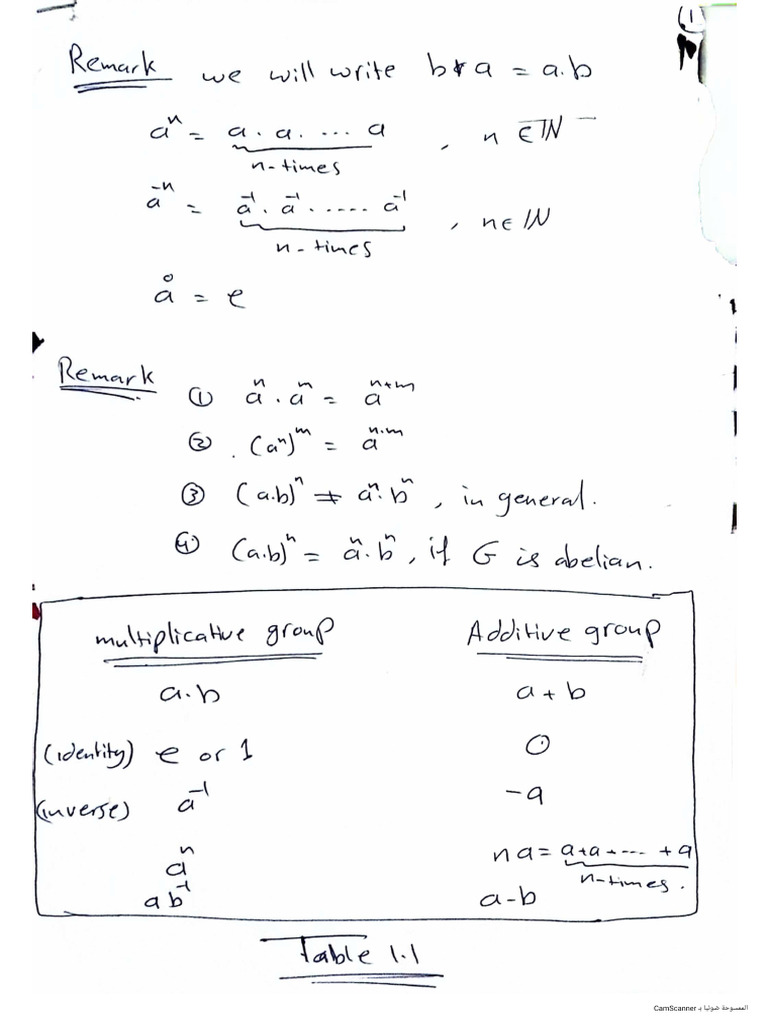 (1)
Remark we will write b*a = a.b
aⁿ = a . a . ... a , n ∈ IN
n-times
a⁻ⁿ = a⁻¹ . a⁻¹ ..... a⁻¹ , n ∈ IN
n-times
a⁰ = e
Remark
① aⁿ . aⁿ = aⁿ⁺ᵐ
② (aⁿ)ᵐ = aⁿ·ᵐ
③ (a.b)ⁿ ≠ aⁿ. bⁿ , in general.
④ (a.b)ⁿ = aⁿ. bⁿ , if G is abelian.
multiplicative group Additive group
a.b a + b
(identity) e or 1 0
(inverse) a⁻¹ -a
aⁿ na = a+a+ ... +a
n-times.
ab⁻¹ a-b
Table 1.1
الممسوحة ضوئيا بـ CamScanner